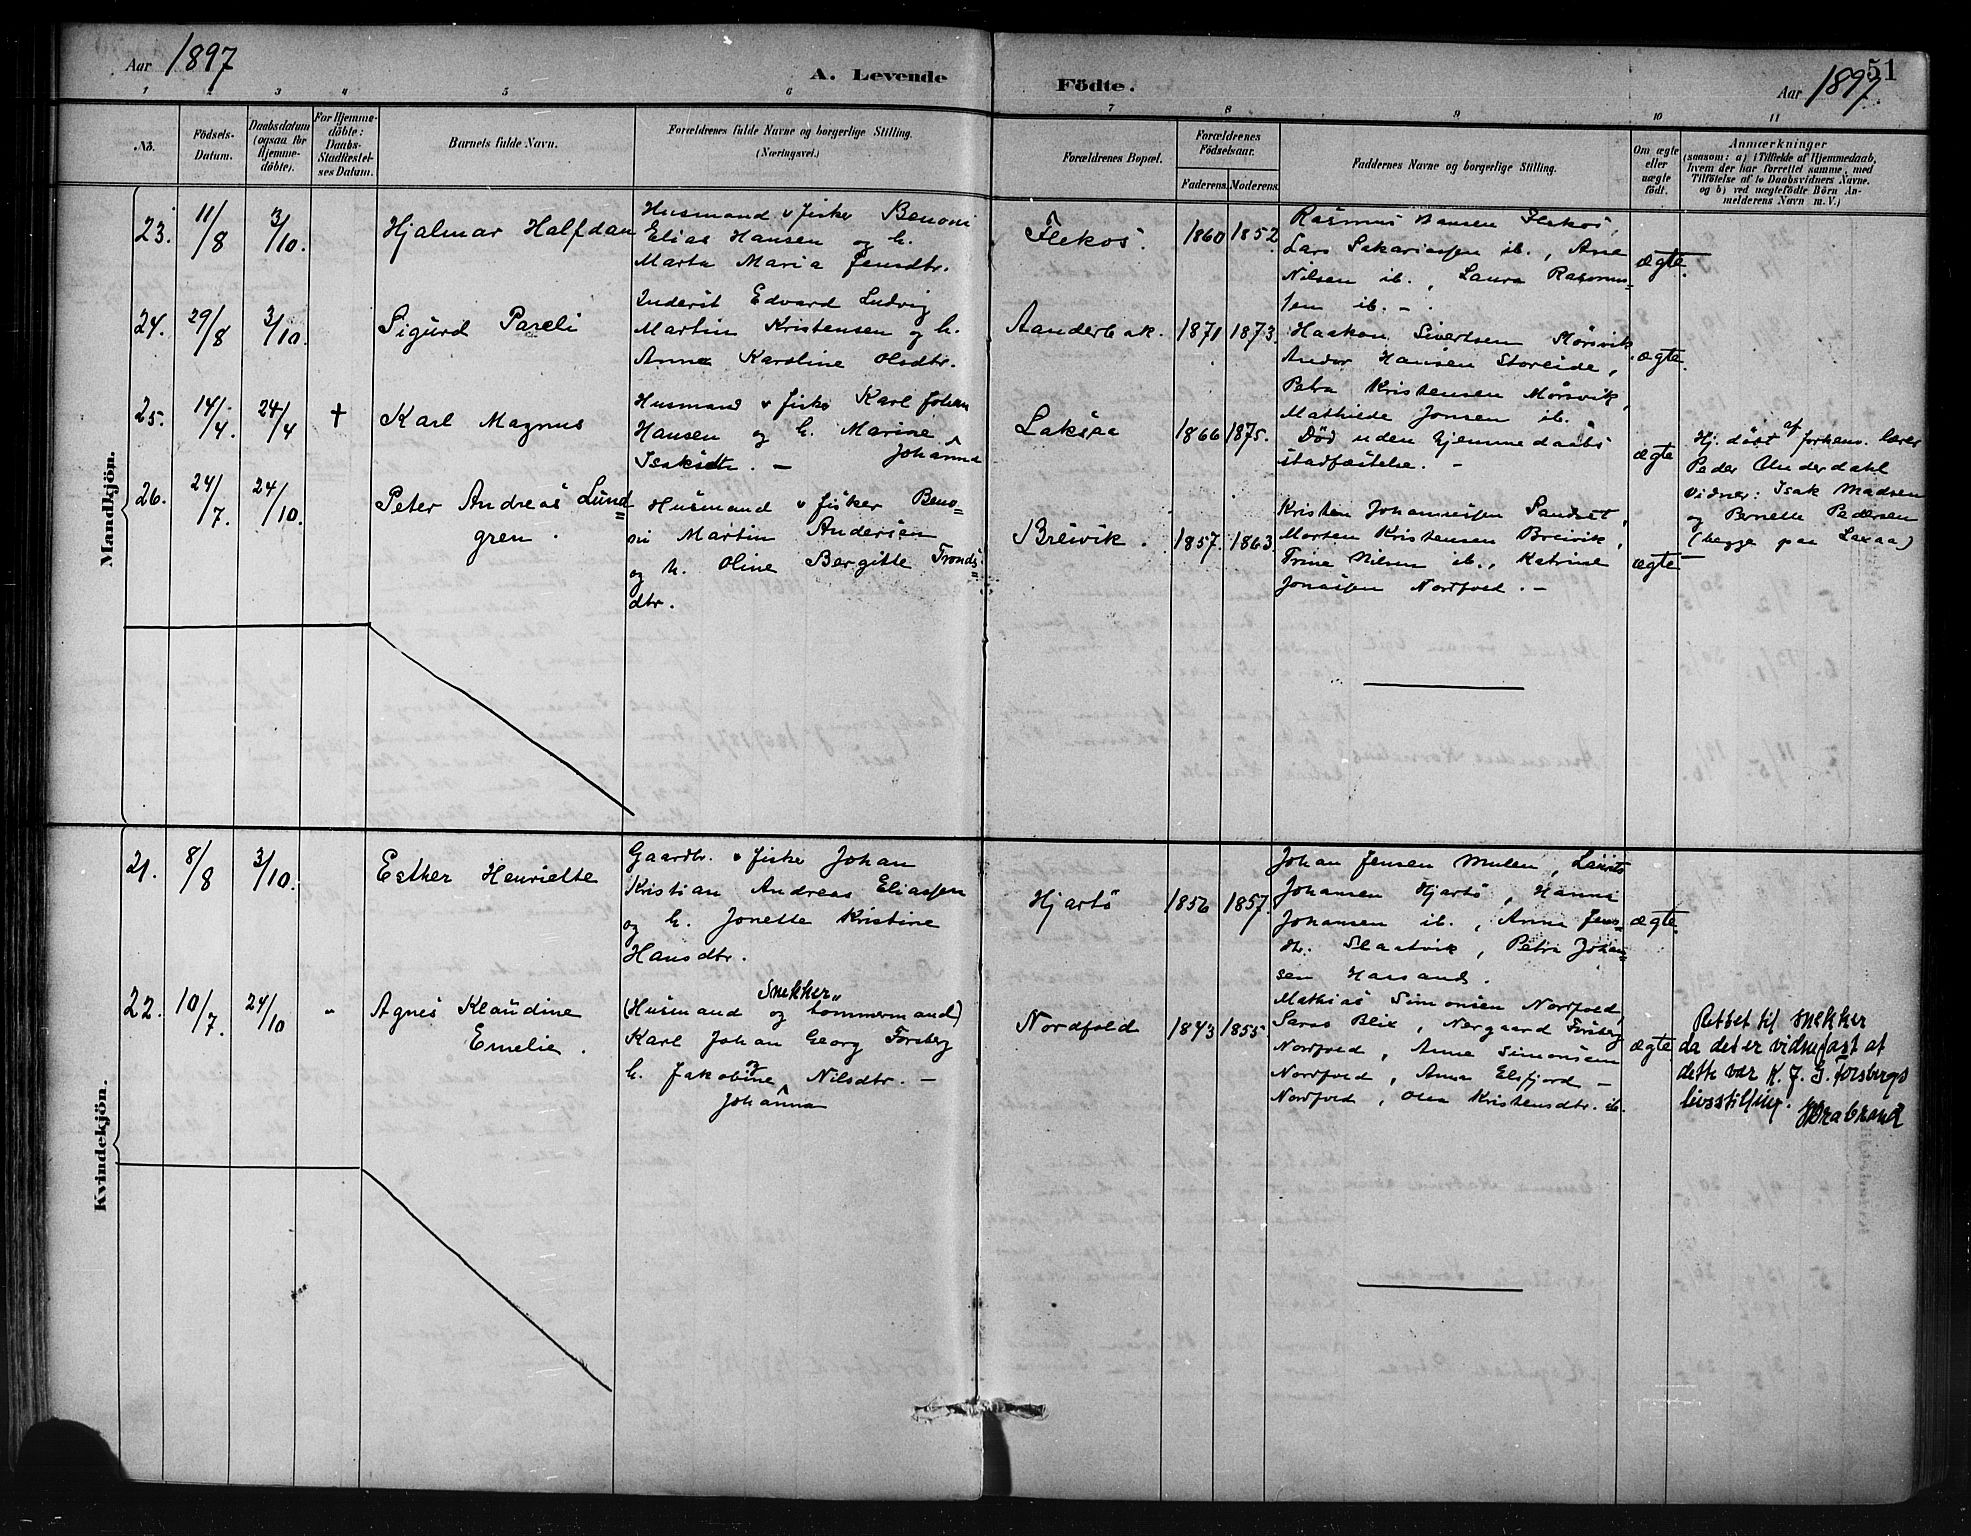 Aar 1897
A. Levende
Födte.
Aar 1897.
51
1 2 3 4 5 6 7 8 9 10 11
No.
Födsels-
Datum.
Daabsdatum
(ogsaa for
Hjemme-
döbte).
For Hjemme-
döbte:
Daabs-
Stadfæstel-
ses Datum.
Barnets fulde Navn.
Forældrenes fulde Navne og borgerlige Stilling.
(Næringsvei.)
Forældrenes Bopæl.
Forældrenes
Födselsaar.
Faderens. Moderens.
Faddernes Navne og borgerlige Stilling.
Om ægte
eller
uægte
födt.
Anmærkninger
(saasom: a) i Tilfælde af Hjemmedaab,
hvem der har forrettet samme, med
Tilföielse af to Daabsvidners Navne.
og b) ved uægtefödte Börn An-
melderens Navn m. V.)
Mandkjön.
23. 11/8 3/10.
Hjalmar Halfdan
Husmand & fisker Benoni
Elias Hansen og h.
Marta Maria Jensdtr.
Flekøs.
1860 1852
Rasmus Hansen Flekøs,
Lars Sakariassen ib., Ane
Nilsen ib., Laura Rasmus-
sen ib. -
ægte.
24. 29/8 3/10.
Sigurd Pareli
Inderst Edvard Ludvig
Martin Kristensen og h.
Anna Karoline Olsdtr.
Aanderbak.
1871 1873.
Haakon Sivertsen Mørsvik
Andor Hansen Storeide,
Petra Kristensen Mørsvik,
Mathilde Jonsen ib.
ægte.
25. 14/4. 24/4 †
Karl Magnus
Husmand & fisker Karl Johan
Hansen og h. Marine
Johanna
Isaksdtr. -
Laksaa
1866 1875.
Død uden hjemmedaabs
stadfæstelse. -
ægte
Hj. døbt af forhenv. lærer
Peder Anderdahl
Vidner: Isak Madsen
og Bernette Pedersen
(begge paa Laxaa)
26. 24/7. 24/10.
Peter Andreas Lund
gren.
Husmand & fisker Beno-
ni Martin Andersen
og h. Oline Bergitte Tronds-
dtr.
Breivik.
1857. 1863.
Kristen Johannessen Sandset,
Morten Kristensen Breivik,
Trine Nilsen ib., Katrine
Jonassen Nordfold. -
ægte
Kvindekjön.
21. 8/8 3/10.
Esther Henriette
Gaardbr. & fisker Johan
Kristian Andreas Eliassen
og h. Jonette Kristine
Hansdtr.
Hjartø
1856 1857.
Johan Jensen Mulen, Laurits
Johansen Hjartø, Hanna
Johansen ib., Anna Jens-
dtr. Slaatvik, Petra Johan-
sen
ægte.
22. 10/7. 24/10 "
Agnes Klaudine
Emelie.
Snekker"
(Husmand og tømmermand)
Karl Johan Georg Forsberg
og
h. Jakobine Nilsdtr. -
Johanna
Nordfold
1843 1855.
Mathias Simonsen Nordfold,
Saras Blix, Nergaard Forsberg
Nordfold, Anne Simonsen
Nordfold, Anna Elsfjord -
Nordfold, Olea Kristensdtr. ib.
ægte
Rettet til snekker
da det er vidnefast at
dette var K. J. G. Forsbergs
livsstilling.